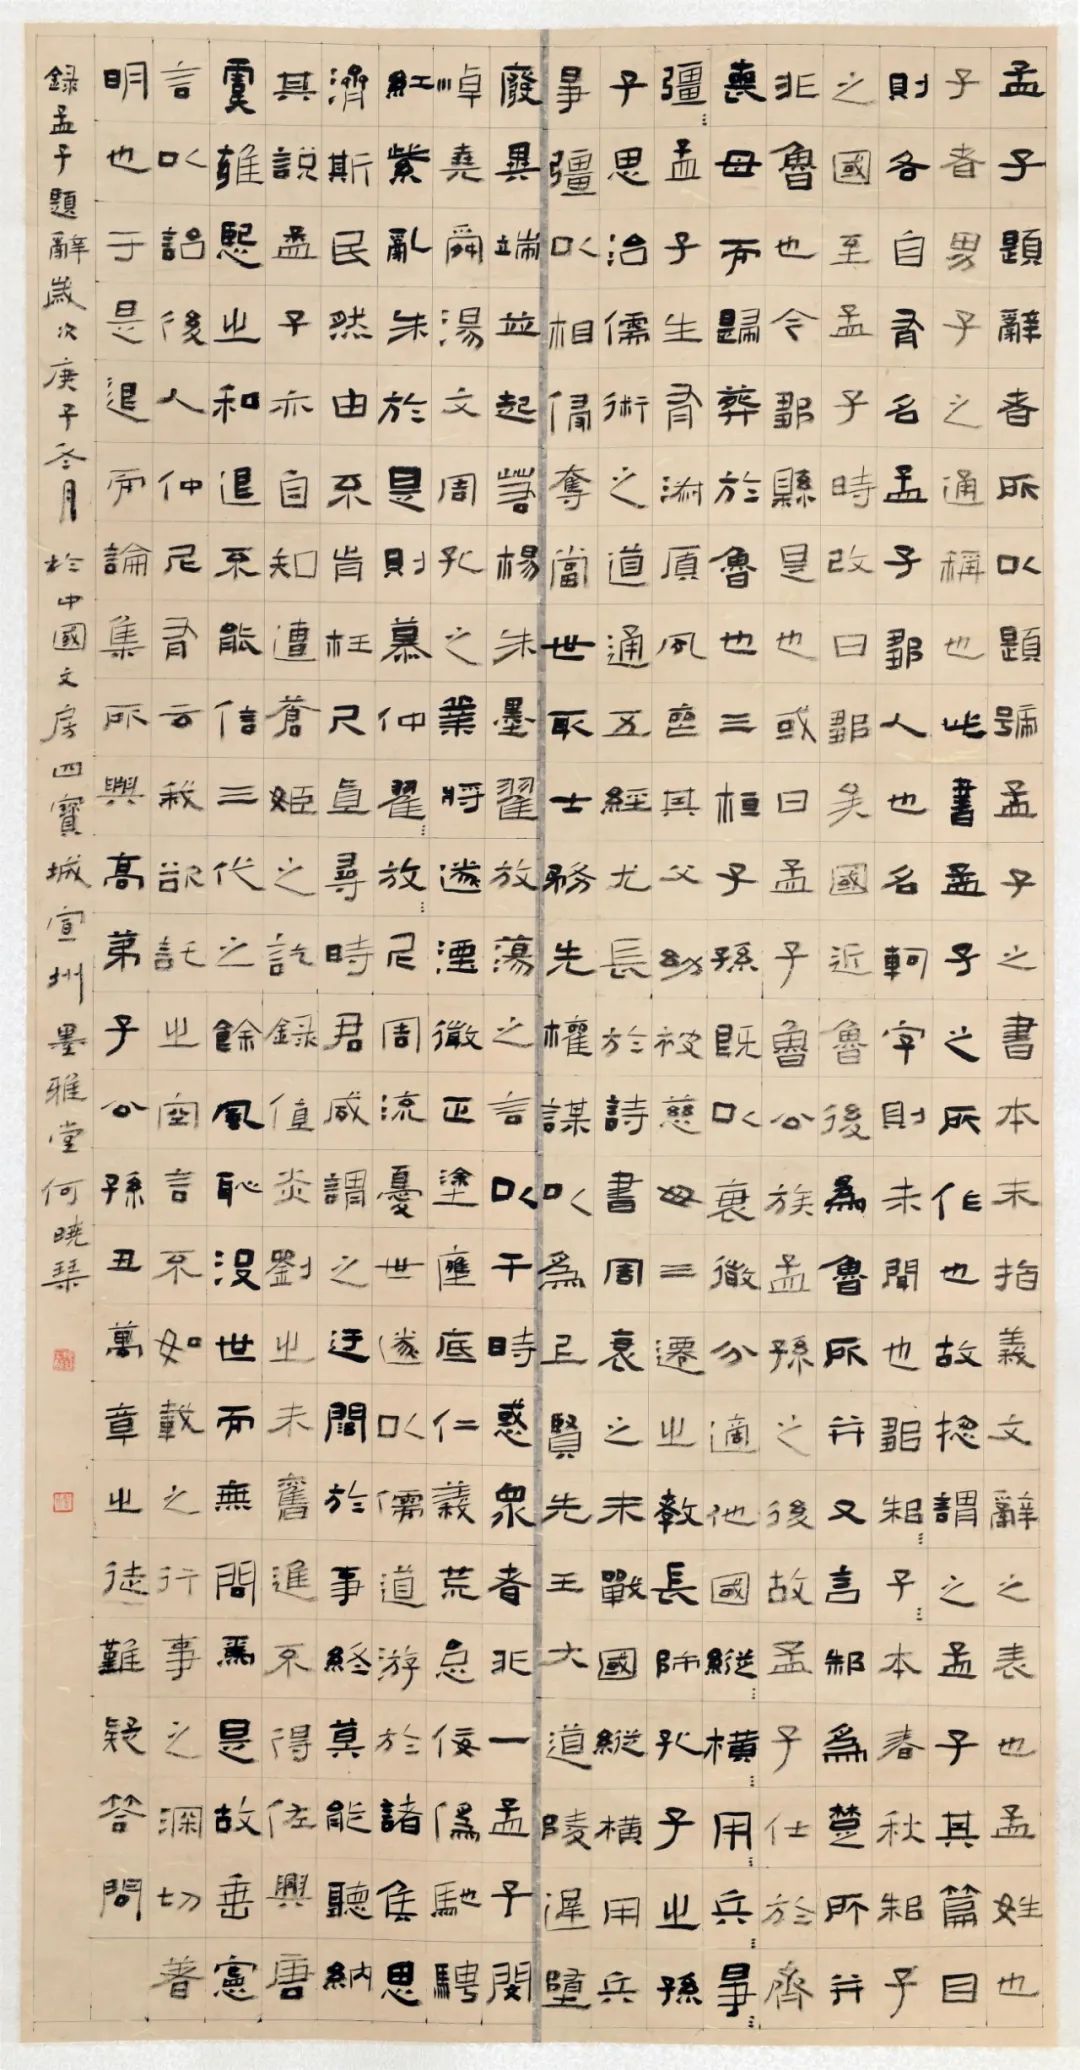 孟子題辭者所以題號孟子之書本末指義文辭之表也孟姓也
子者男子之通稱也此書孟子之所作也故揔謂之孟子其篇目
則各自有名孟子鄒人也名軻字則未聞也鄒邾子本春秋邾子
之國至孟子時改曰鄒矣國近魯後為魯所并又言邾為楚所并
非魯也今鄒縣是也或曰孟子魯公族孟孫之後故孟子仕於齊
喪母而歸葬於魯也三桓子孫既以衰微分適他國縱橫用兵爭
彊孟子生有淑質夙喪其父幼被慈母三遷之教長師孔子之孫
子思治儒術之道通五經尤長於詩書周衰之末戰國縱橫用兵
爭彊以相侵奪當世取士務先權謀以為上賢先王大道陵遲墮
廢異端並起若楊朱墨翟放蕩之言以干時惑眾者非一孟子閔
悼堯舜湯文周孔之業將遂湮微正塗壅底仁義荒怠佞偽馳騁
紅紫亂朱於是則慕仲翟放尼周流憂世遂以儒道游於諸侯思
濟斯民然由不肯枉尺直尋時君咸謂之迂闊於事終莫能聽納
其說孟子亦自知遭蒼姬之訖錄值炎劉之未奮進不得佐興唐
虞雍熙之和退不能信三代之餘風恥沒世而無問焉是故垂憲
言以詒後人仲尼有云我欲託之空言不如載之行事之深切著
明也于是退而論集所與高弟子公孫丑萬章之徒難疑答問
錄孟子題辭歲次庚子冬月於中國文房四寶城宣州墨雅堂何曉琹